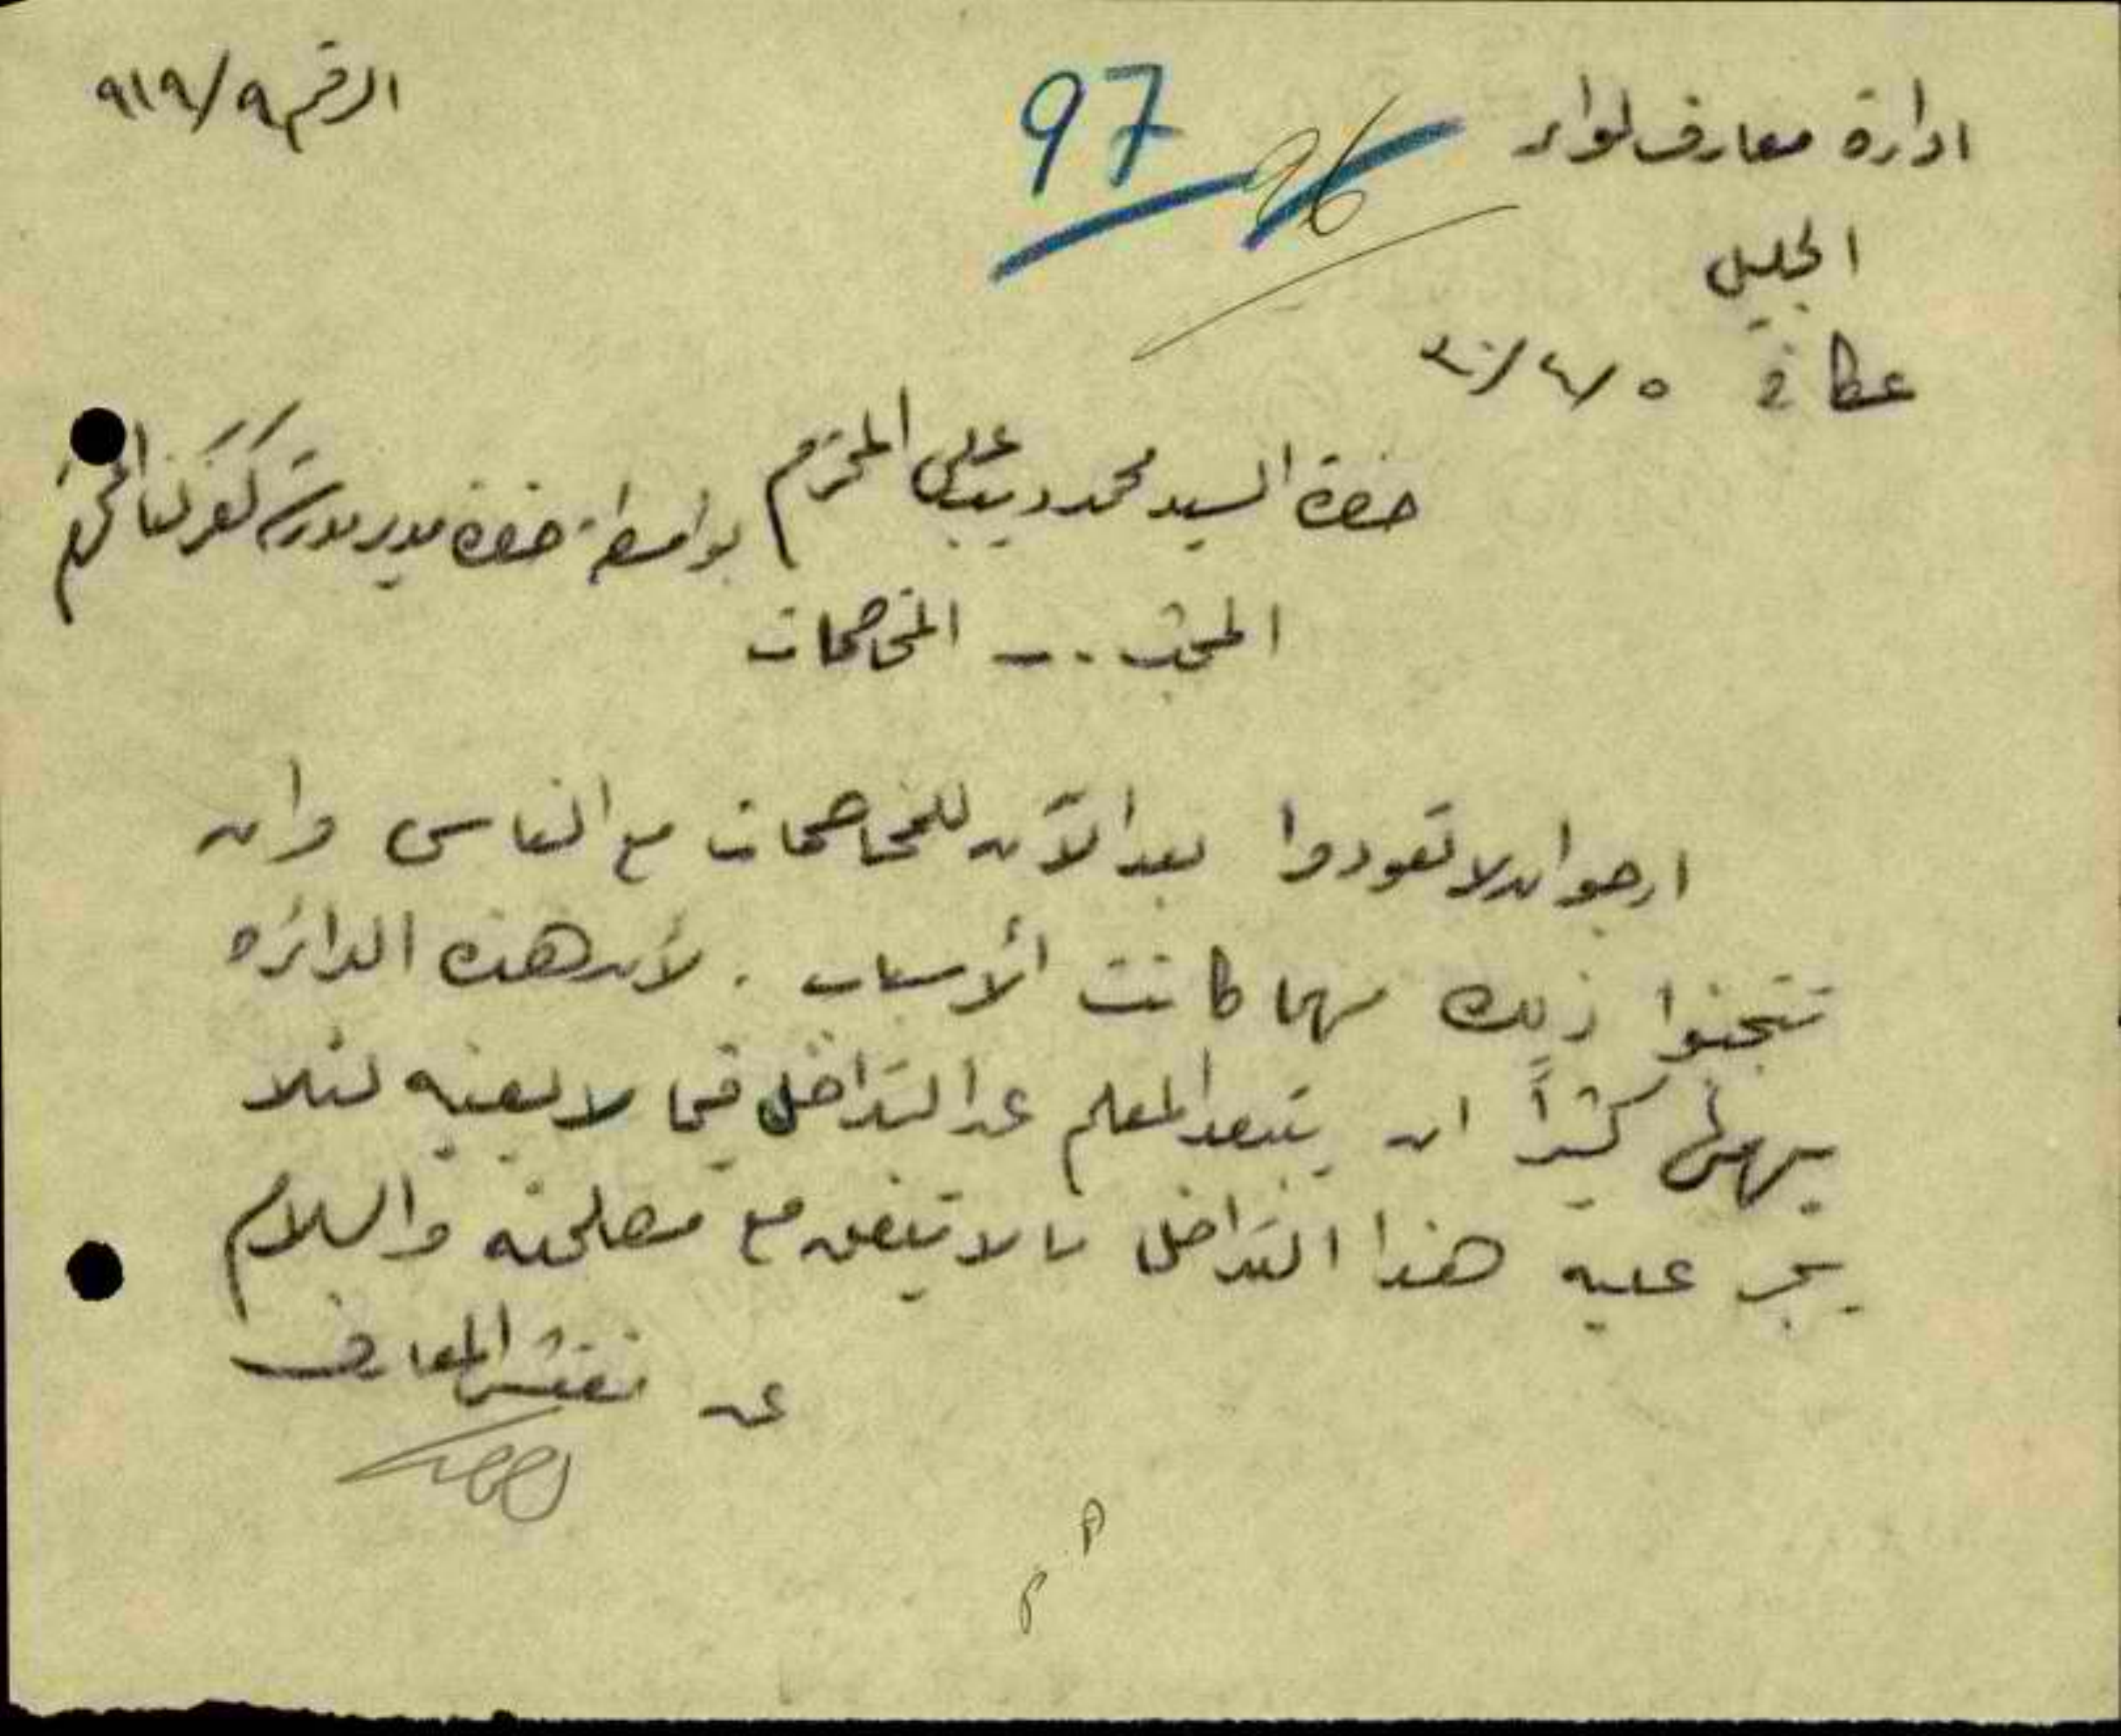 الرقم ٩/٩١٩
97 96
ادارة معارف لواء
الجليل
عكا في ٣٠/٤/٥
حضرة السيد محمد ديب علي المحترم بواسطة حضرة مدير مدرسة كفركنا المحترم
المبحث -- المخاصمات
ارجو ان لا تعودوا بعد الآن للمخاصمات مع الناس وان
تتجنبوا ذلك مهما كانت الأسباب . لأن هذه الدائرة
يهمها كثيراً ان يبتعد المعلم عن التداخل فيما لا يعنيه لئلا
يجر عليه هذا التداخل ما لا يتفق مع مصلحته والسلام
عن مفتش المعارف